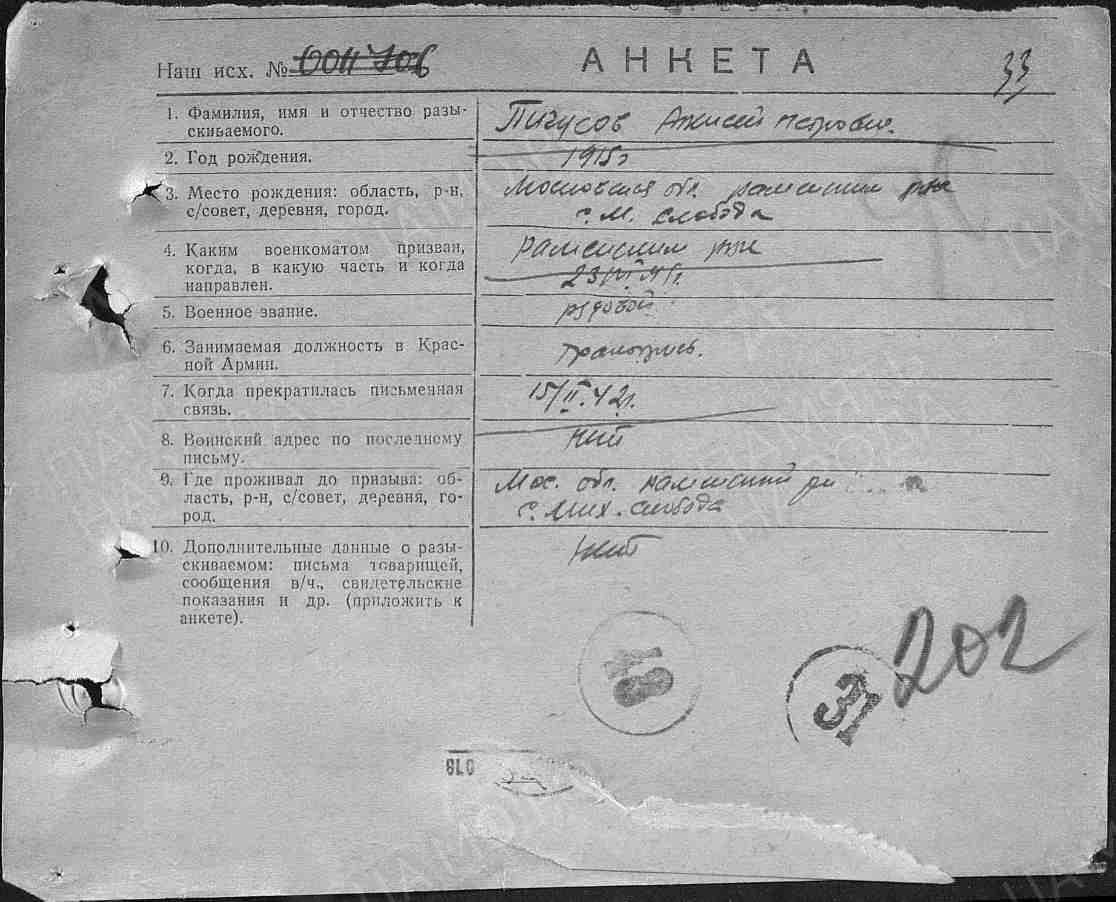 Наш исх. № 0011706
АНКЕТА
33
1. Фамилия, имя и отчество разы-
скиваемого.
Пичусов Алексей Петрович.
2. Год рождения.
1915 г
3. Место рождения: область, р-н,
с/совет, деревня, город.
Московская обл. раменский рне
с. М. слобода
4. Каким военкоматом призван,
когда, в какую часть и когда
направлен.
Раменским рвк
23/VI 41 г.
5. Военное звание.
рядовой
6. Занимаемая должность в Крас-
ной Армии.
7. Когда прекратилась письменная
связь.
15/II.42 г.
8. Воинский адрес по последнему
письму.
нит
9. Где проживал до призыва: об-
ласть, р-н, с/совет, деревня, го-
род.
Мос. обл. раменский
с. Мих. слобода
10. Дополнительные данные о разы-
скиваемом: письма товарищей,
сообщения в/ч., свидетельские
показания и др. (приложить к
анкете).
нит
202
31
018